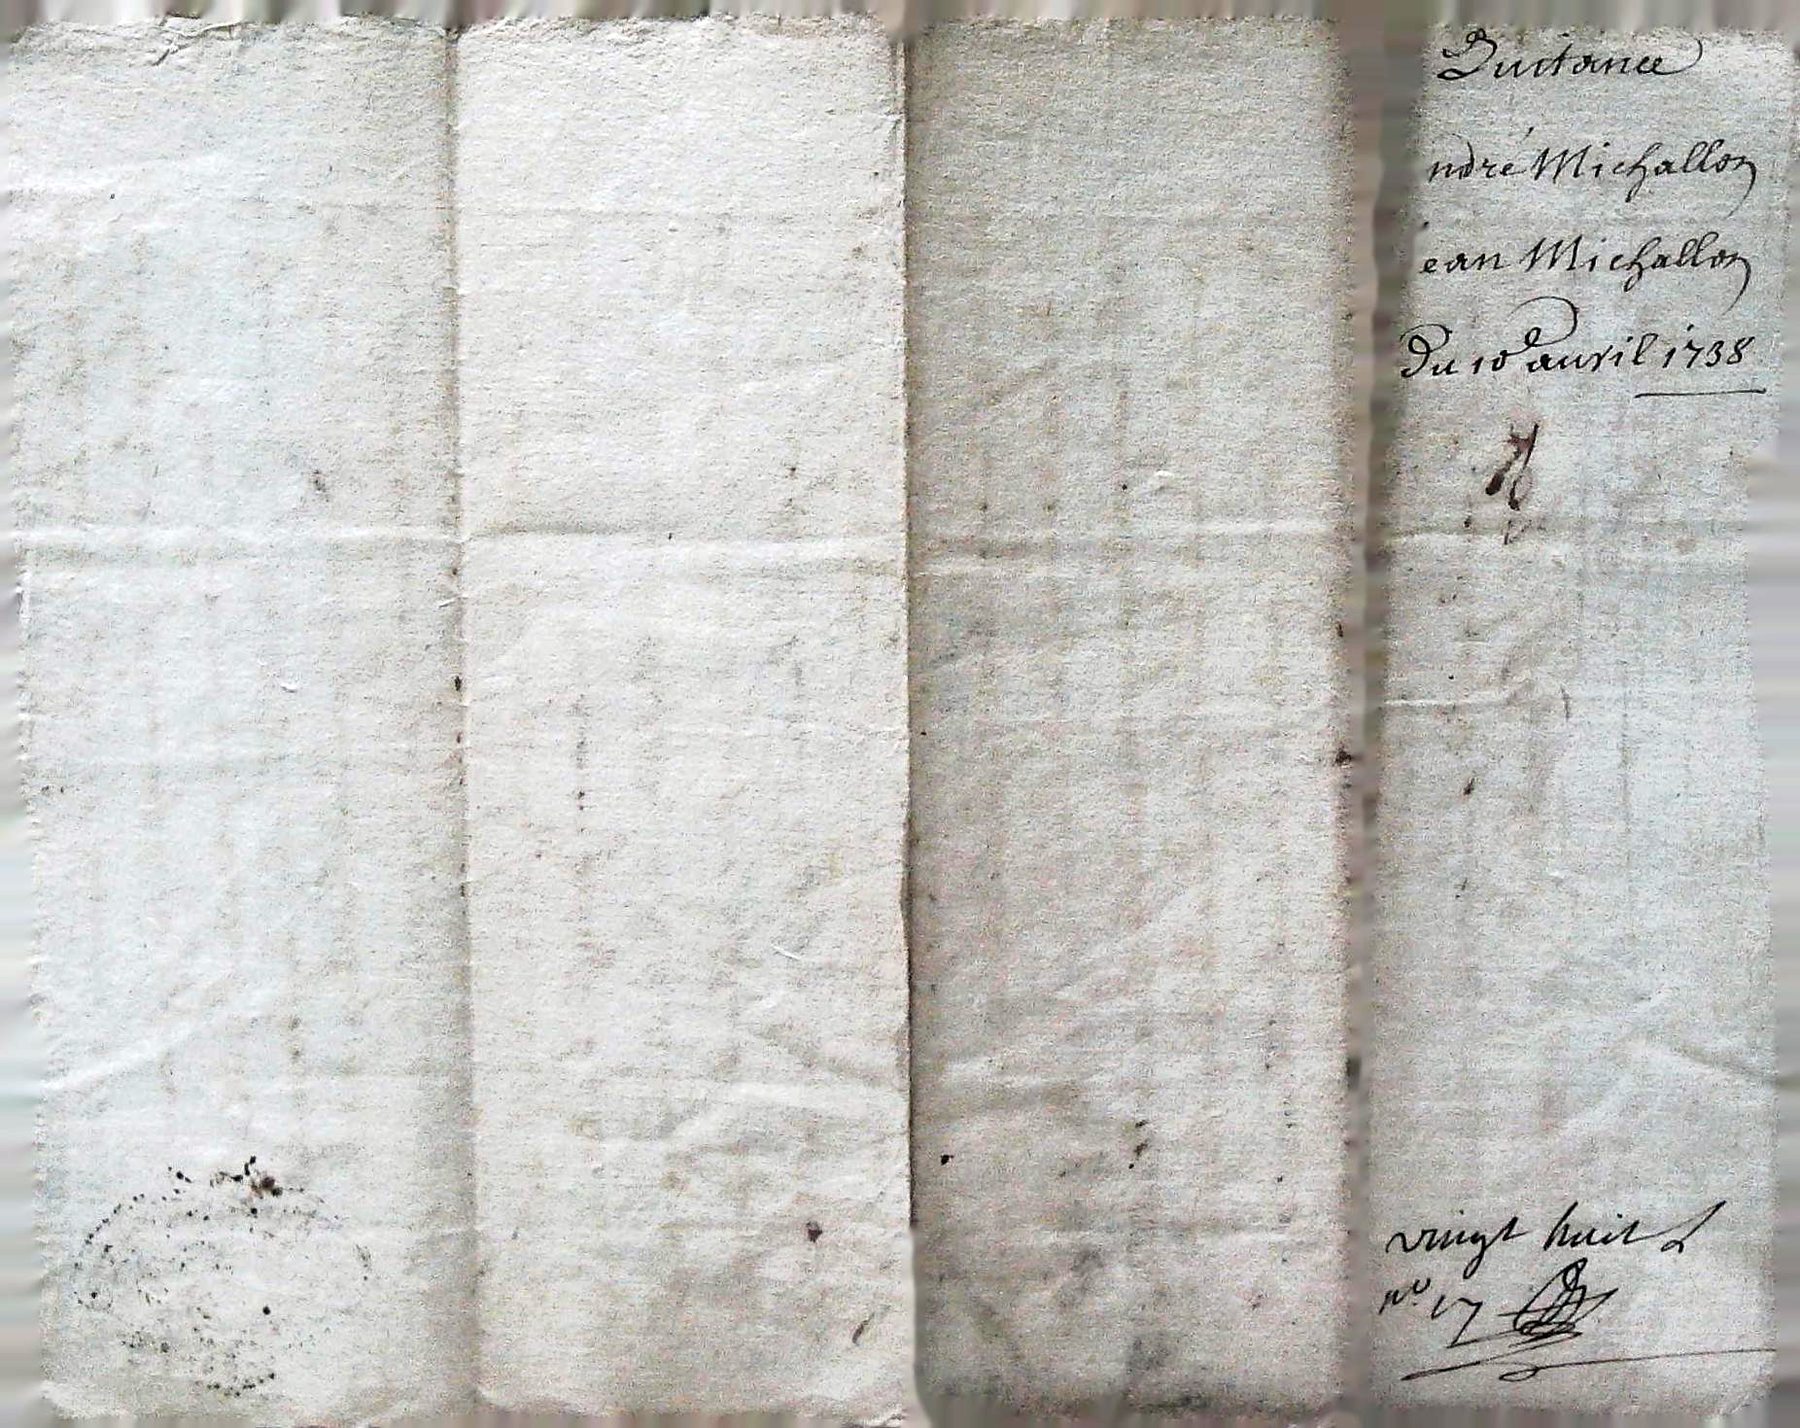 Quitance
ndré Michallon
ean Michallon
Du 10e auril 1738
vingt huit
no. 17